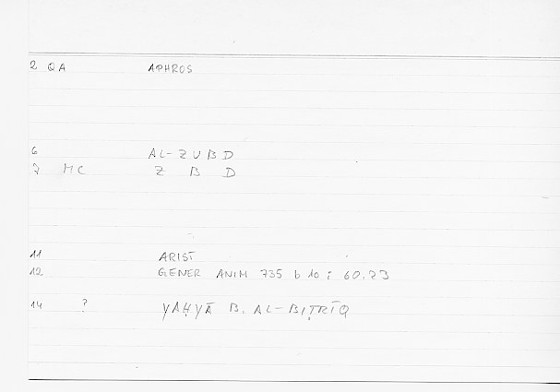 2 QA APHROS
6 AL-ZUBD
7 MC Z B D
11 ARIST
12 GENER ANIM 735 b 10 ; 60.23
14 ? YAḤYĀ B. AL-BIṬRĪQ